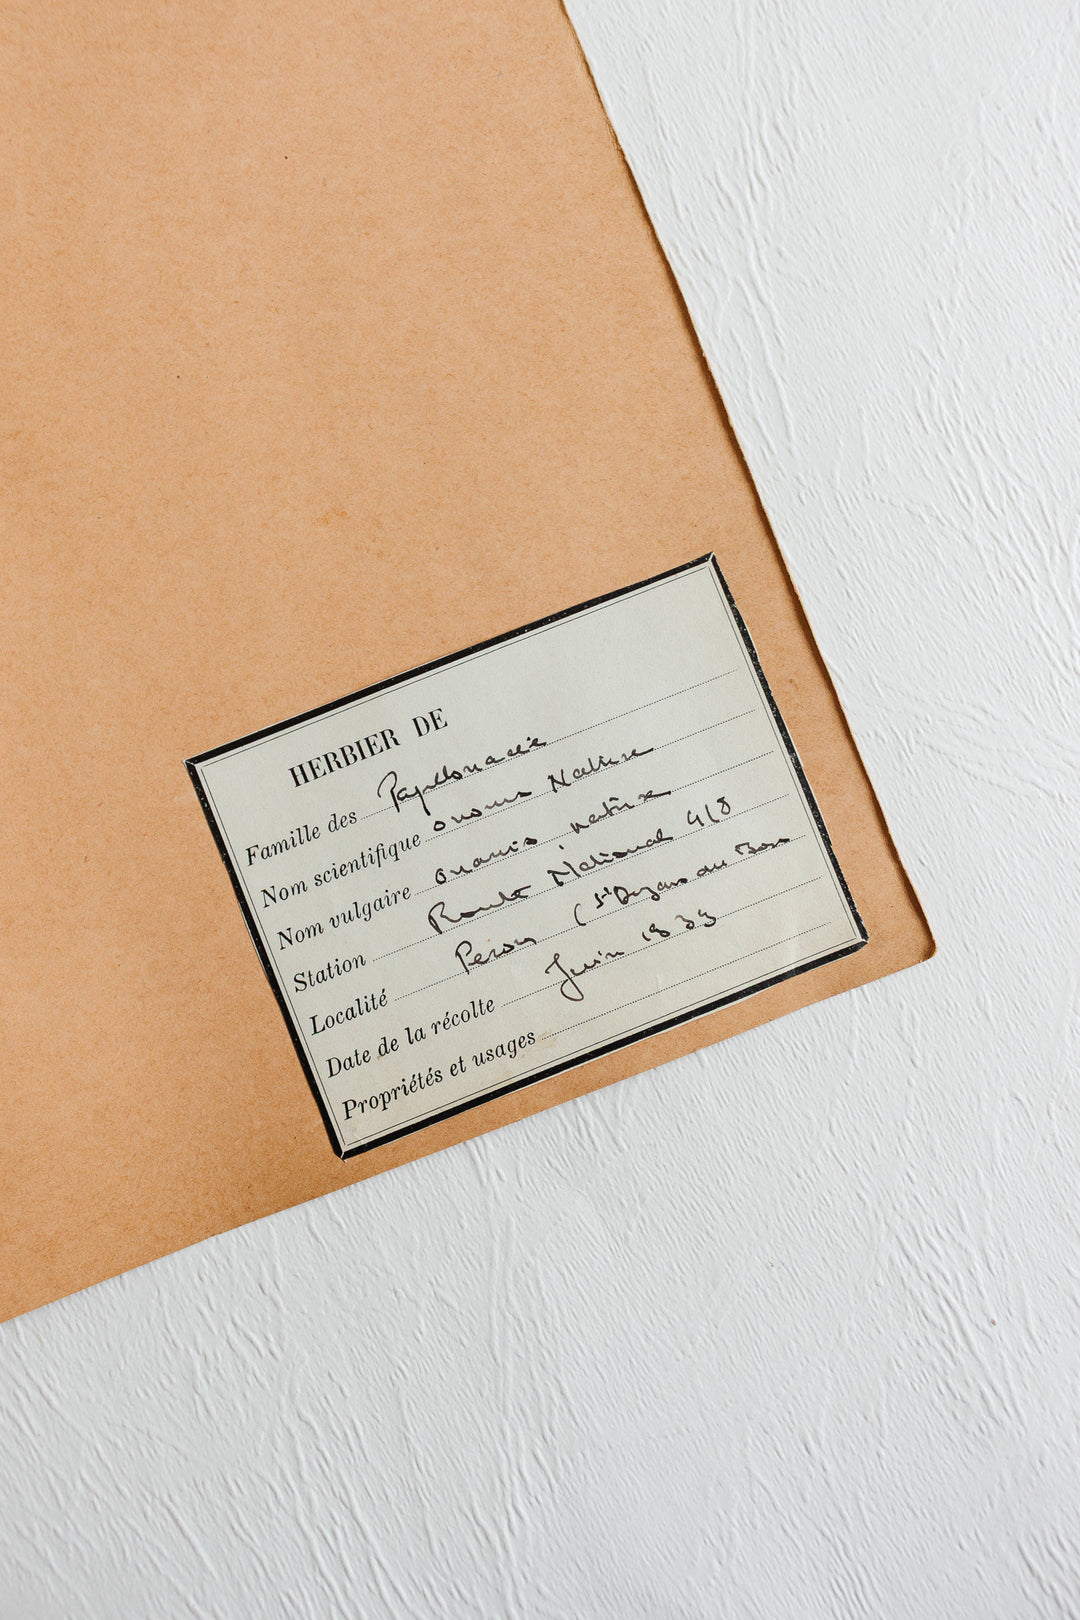 HERBIER DE
Famille des Papillonacée
Nom scientifique ononis Natrix
Nom vulgaire ononis natrix
Station Route National
Localité (St
Date de la récolte Juin
Propriétés et usages